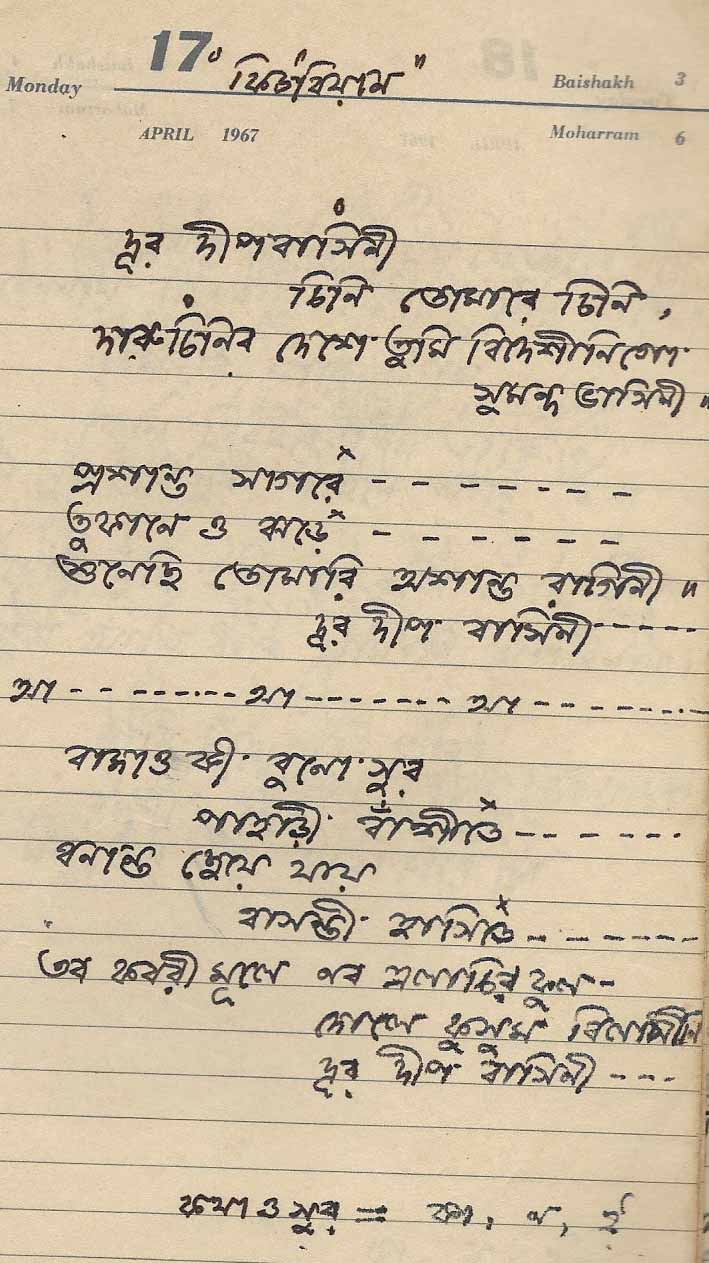 17 "ফিটারিয়াম"
Monday Baishakh 3
APRIL 1967 Moharram 6
দূর দ্বীপবাসিনী
চিনি তোমারে চিনি,
দারুচিনির দেশে তুমি বিদেশীনিগো
সুমন্দ ভাসিনী"
প্রশান্ত সাগরে - - - - - - - -
তুফানে ও ঝড়ে - - - - - - -
শুনেছি তোমারি অশান্ত রাগিনী"
দূর দ্বীপ বাসিনী - - - - -
আ - - - - - - - - আ - - - - - - - আ - - - - - - - -
বাজাও কী বুনো সুর
পাহাড়ী বাঁশীতে - - - - - -
বনান্ত ছেয়ে যায়
বাসন্তী হাসিতে - - - - - - -
তব কবরী মূলে নব এলাচির ফুল -
দোলে কুসুম বিলাসিনী
দূর দ্বীপ বাসিনী - - -
কথা ও সুর = কা, ন, ই